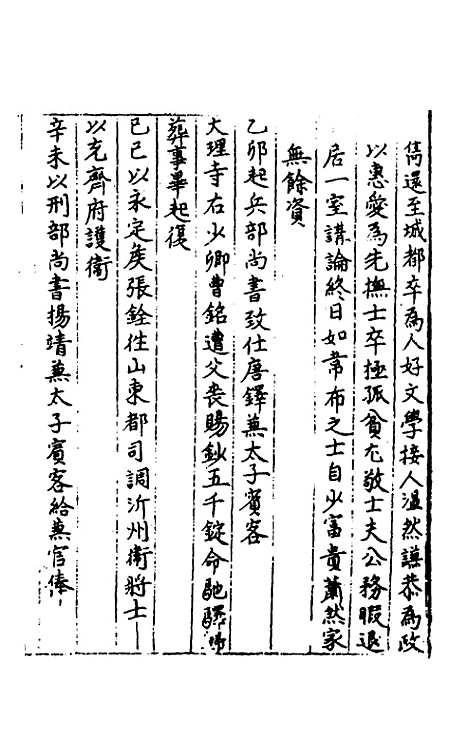 儁還至城都卒為人好文學接人溫然謙恭為政
以惠愛為先撫士卒極孤貧尤敬士夫公務暇退
居一室講論終日如常布之士自少富貴蕭然家
無餘資
乙卯起兵部尚書致仕唐鐸蒹太子賓客
大理寺右少卿曹銘遭父喪賜鈔五千錠命馳驛
葬事畢起復
己巳以永定矦張銓往山東都司調沂州衛將士
以充齊府護衛
辛未以刑部尚書揚靖蒹太子賓客給蒹官俸